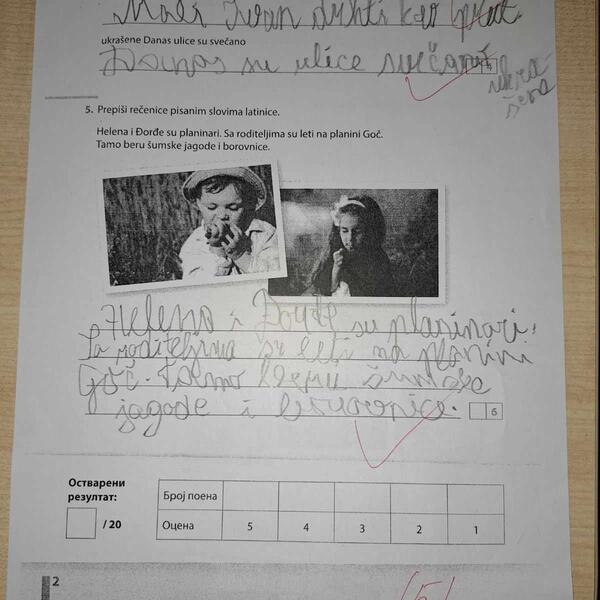 Mali Ivan drhti kao prut.
ukrašene Danas ulice su svečano
Danas su ulice svečano
ukra-
šene
5. Prepiši rečenice pisanim slovima latinice.
Helena i Đorđe su planinari. Sa roditeljima su leti na planini Goč.
Tamo beru šumske jagode i borovnice.
Helena i Đorđe su planinari.
Sa roditeljima su leti na planini
Goč. Tamo beru šumske
jagode i borovnice.
6
Остварени
резултат:
/ 20
Број поена
Оцена 5 4 3 2 1
2
(5)